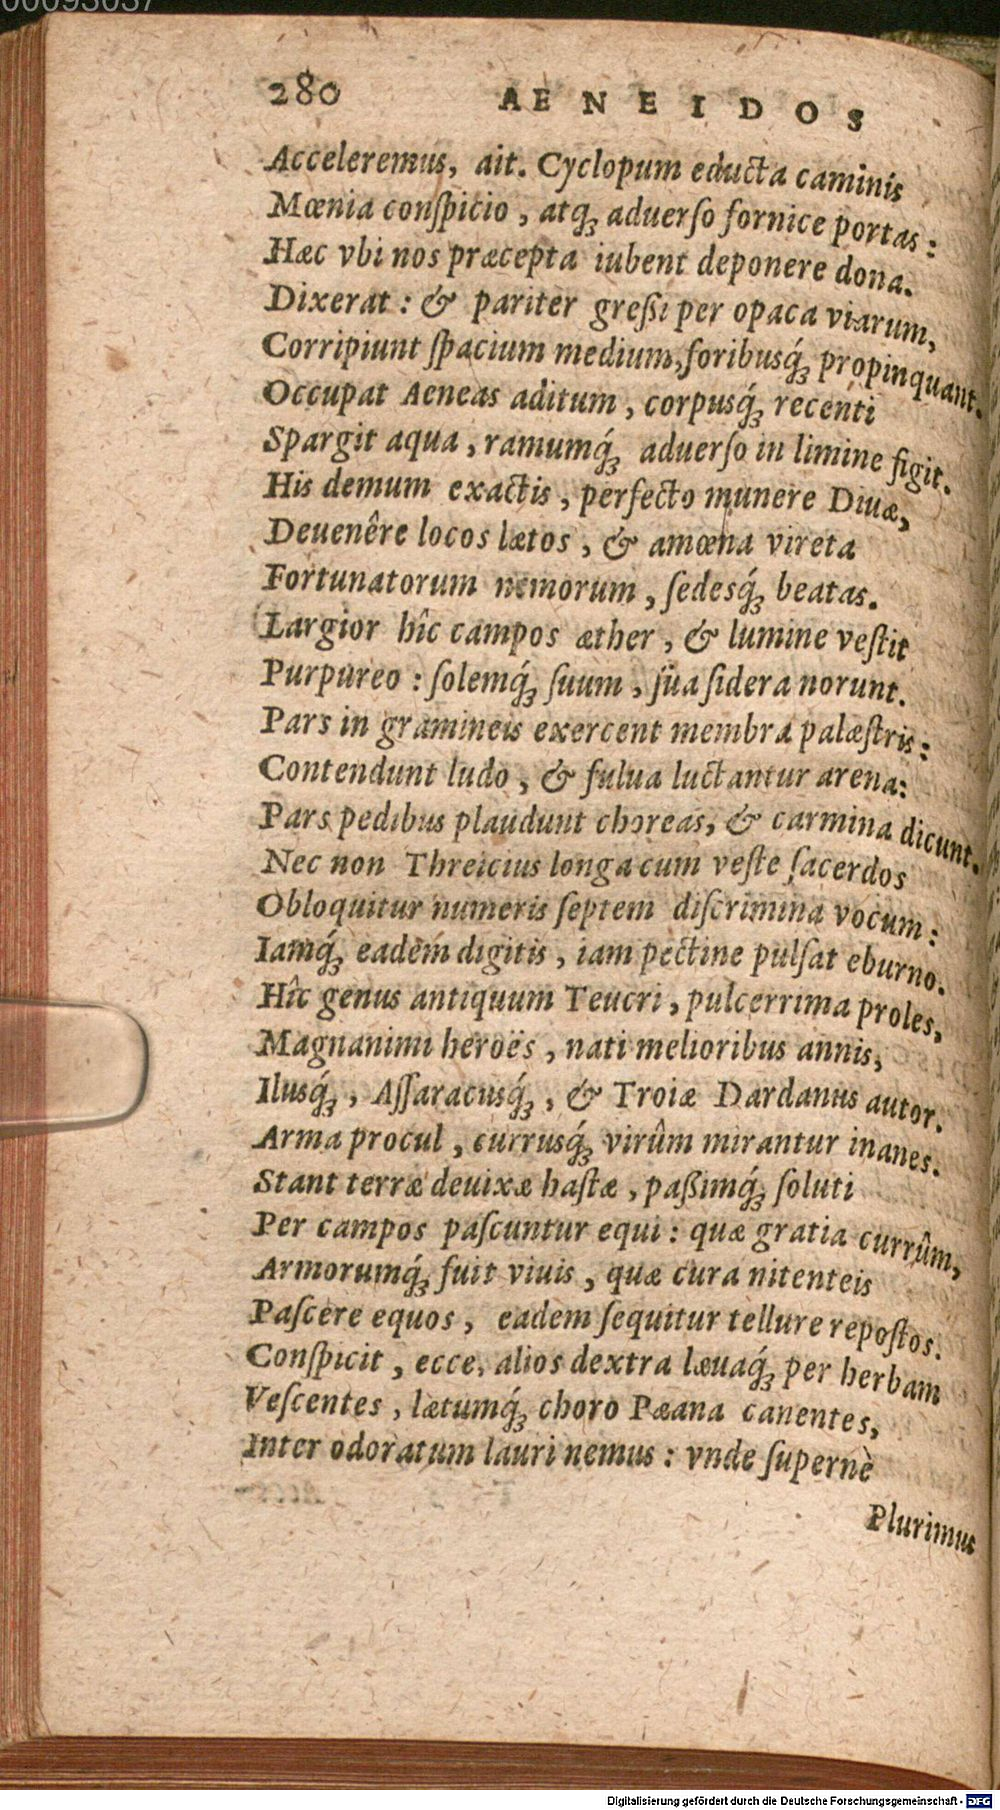 00093037
280 AENEIDOS
Acceleremus, ait. Cyclopum educta caminis
Mœnia conſpicio, atqꝫ aduerſo fornice portas:
Hæc vbi nos præcepta iubent deponere dona.
Dixerat: & pariter greßi per opaca viarum,
Corripiunt ſpacium medium, foribusq́ꝫ propinquant.
Occupat Aeneas aditum, corpusq́ꝫ recenti
Spargit aqua, ramumq́ꝫ aduerſo in limine figit.
His demum exactis, perfecto munere Diuæ,
Deuenêre locos lætos, & amœna vireta
Fortunatorum nemorum, ſedesq́ꝫ beatas.
Largior hîc campos æther, & lumine veſtit
Purpureo: ſolemq́ꝫ ſuum, ſua ſidera norunt.
Pars in gramineis exercent membra palæſtris:
Contendunt ludo, & fulua luctantur arena:
Pars pedibus plaudunt choreas, & carmina dicunt.
Nec non Threicius longa cum veſte ſacerdos
Obloquitur numeris ſeptem diſcrimina vocum:
Iamq́ꝫ eadem digitis, iam pectine pulſat eburno.
Hîc genus antiquum Teucri, pulcerrima proles,
Magnanimi heroës, nati melioribus annis,
Ilusq́ꝫ, Aſſaracusq́ꝫ, & Troiæ Dardanus autor.
Arma procul, currusq́ꝫ virûm mirantur inanes.
Stant terræ deuixæ haſtæ, paßimq́ꝫ ſoluti
Per campos paſcuntur equi: quæ gratia currûm,
Armorumq́ꝫ fuit viuis, quæ cura nitenteis
Paſcere equos, eadem ſequitur tellure repoſtos.
Conſpicit, ecce, alios dextra læuaq́ꝫ per herbam
Veſcentes, lætumq́ꝫ choro Pæana canentes,
Inter odoratum lauri nemus: vnde ſupernè
Plurimus
Digitalisierung gefördert durch die Deutsche Forschungsgemeinschaft - DFG